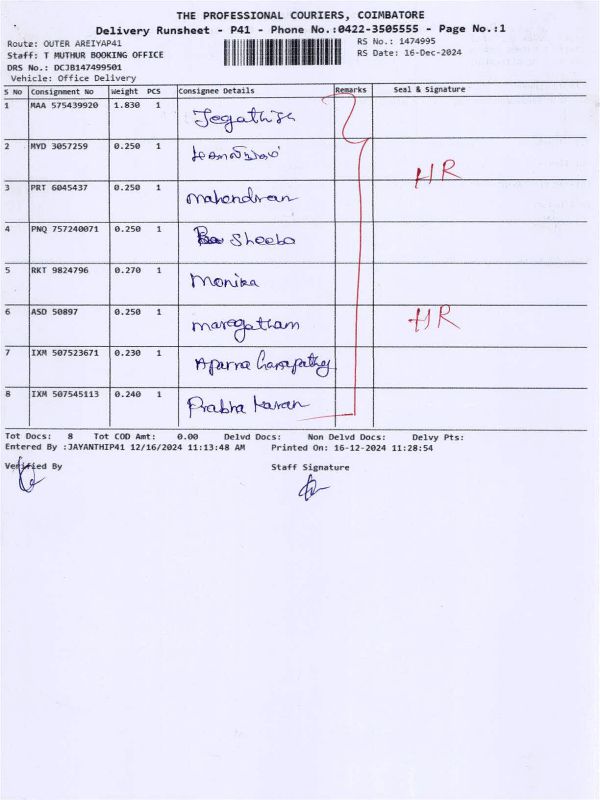 THE PROFESSIONAL COURIERS, COIMBATORE
Delivery Runsheet - P41 - Phone No.:0422-3505555 - Page No.:1
Route: OUTER AREIYAP41 RS No.: 1474995
Staff: T MUTHUR BOOKING OFFICE RS Date: 16-Dec-2024
DRS No.: DCJB147499501
Vehicle: Office Delivery
S No Consignment No Weight PCS Consignee Details Remarks Seal & Signature
1 MAA 575439920 1.830 1 Jegathish
2 MYD 3057259 0.250 1
HR
3 PRT 6045437 0.250 1 Mahendiran
4 PNQ 757240071 0.250 1 Sheeba
5 RKT 9824796 0.270 1 Monika
6 ASD 50897 0.250 1 Maregatham HR
7 IXM 507523671 0.230 1 Aparna Ganapathy
8 IXM 507545113 0.240 1 Prabha Karan
Tot Docs: 8 Tot COD Amt: 0.00 Delvd Docs: Non Delvd Docs: Delvy Pts:
Entered By :JAYANTHIP41 12/16/2024 11:13:48 AM Printed On: 16-12-2024 11:28:54
Verified By Staff Signature